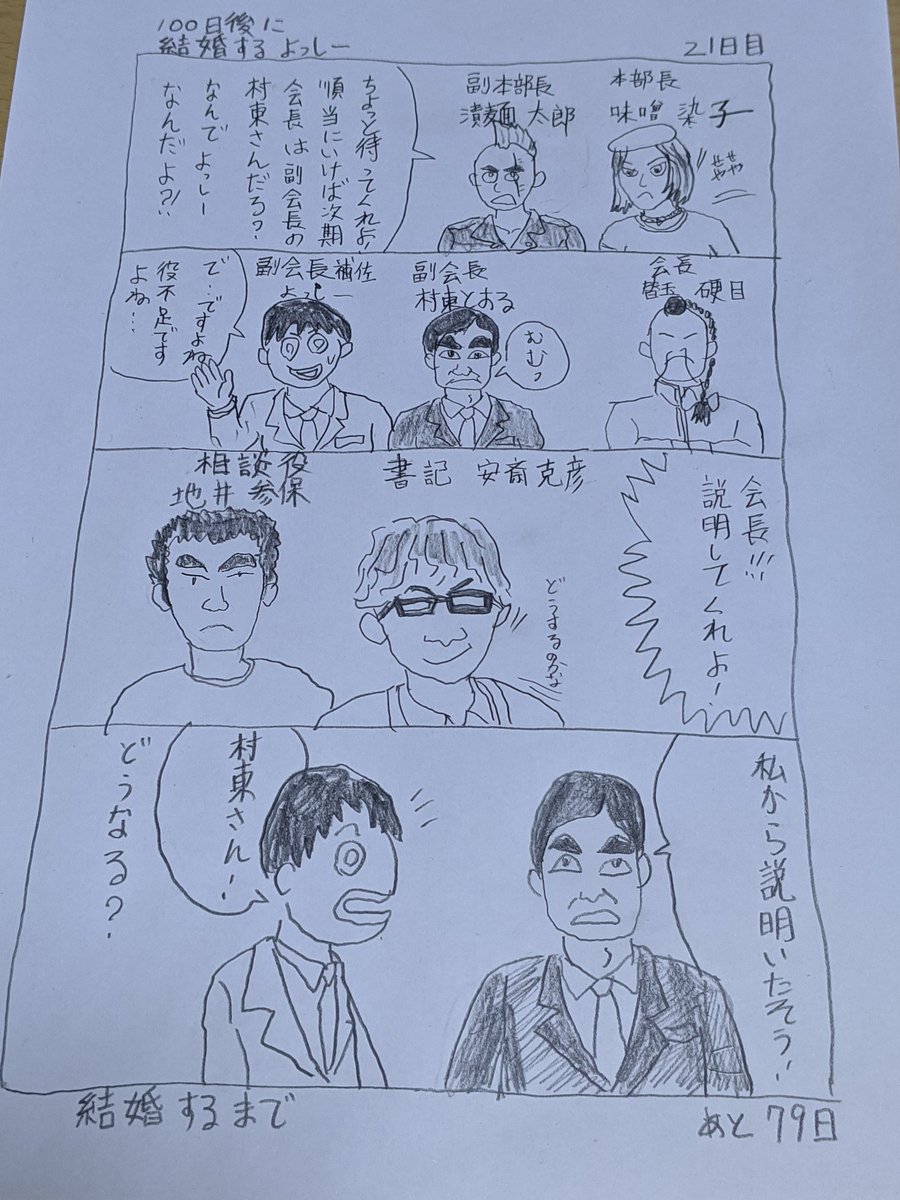 100日後に
結婚するよっしー
21日目
本部長
味噌染子
せやせや
副本部長
漬麺太郎
ちょっと待ってくれよ!
順当にいけば次期
会長は副会長の
村東さんだろ?
なんでよっしー
なんだよ?!
会長
替玉硬目
副会長
村東とおる
むむっ
副会長補佐
よっしー
で‥ですよね
役不足です
よね‥
会長!!!
説明してくれよ!
書記 安斎克彦
どうするのかな
相談役
地井参保
私から説明いたそう!
村東さん!
どうなる?
結婚するまで
あと79日